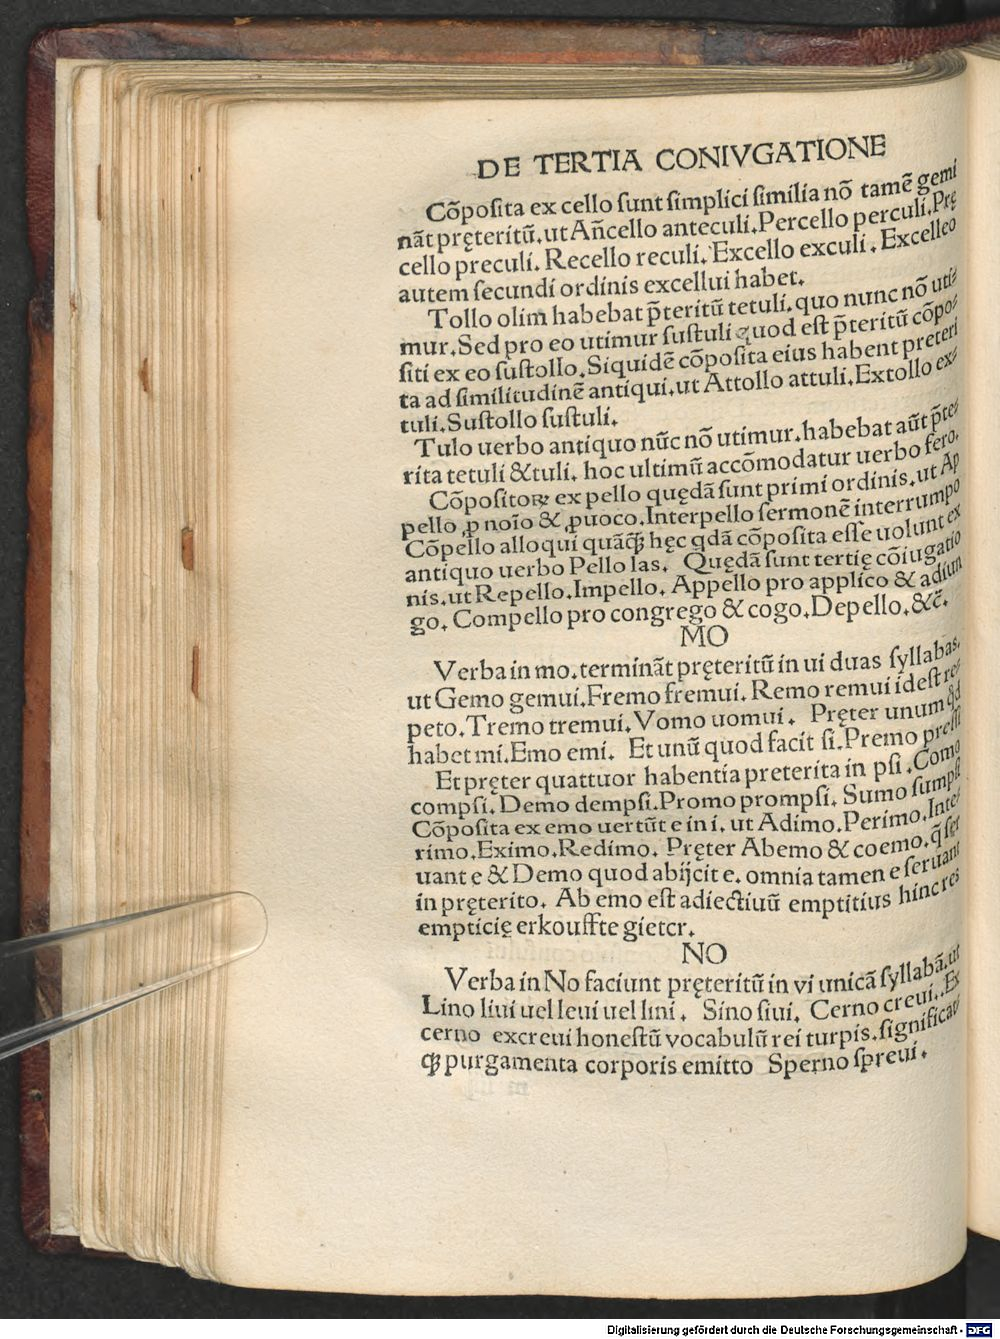 DE TERTIA CONIVGATIONE
Cōposita ex cello sunt simplici similia nō tamē gemi
nāt pręteritū.ut Añcello anteculi.Percello perculi.Prę
cello preculi. Recello reculi. Excello exculi. Excelleo
autem secundi ordinis excellui habet.
Tollo olim habebat p̄teritū tetuli.quo nunc nō uti⸗
mur.Sed pro eo utimur sustuli quod est p̄teritū cōpo⸗
siti ex eo sustollo.Siquidē cōposita eius habent preteri
ta ad similitudinē antiqui.ut Attollo attuli.Extollo ex⸗
tuli.Sustollo sustuli.
Tulo uerbo antiquo nūc nō utimur.habebat aūt p̄te⸗
rita tetuli &tuli. hoc ultimū accōmodatur uerbo fero.
Cōpositoꝝ ex pello quędā sunt primi ordinis.ut Ap
pello ꝓ noīo & ꝓuoco.Interpello sermonē interrumpo
Cōpello alloqui quāꝙ hęc qdā cōposita esse uolunt ex
antiquo uerbo Pello las. Quędā sunt tertię cōiugatio
nis.ut Repello.Impello. Appello pro applico & adiun
go. Compello pro congrego & cogo.Depello.&c̄.
MO
Verba in mo.termināt pręteritū in ui duas syllabas.
ut Gemo gemui.Fremo fremui. Remo remui id est re⸗
peto.Tremo tremui.Vomo uomui. Pręter unum qd
habet mi.Emo emi. Et unū quod facit si.Premo pressi
Et pręter quattuor habentia preterita in psi .Como
compsi.Demo dempsi.Promo prompsi. Sumo sumpsi
Cōposita ex emo uertūt e in i. ut Adimo.Perimo.Inte⸗
rimo.Eximo.Redimo. Pręter Abemo & coemo.q̄ ser
uant e & Demo quod abijcit e. omnia tamen e seruant
in pręterito. Ab emo est adiectiuū emptitius hinc res
empticię erkouffte gieter.
NO
Verba in No faciunt pręteritū in vi unicā syllabā.ut
Lino liui uel leui uel lini . Sino siui. Cerno creui..Ex
cerno excreui honestū vocabulū rei turpis.significat
ꝙ purgamenta corporis emitto Sperno spreui.
Digitalisierung gefördert durch die Deutsche Forschungsgemeinschaft - DFG